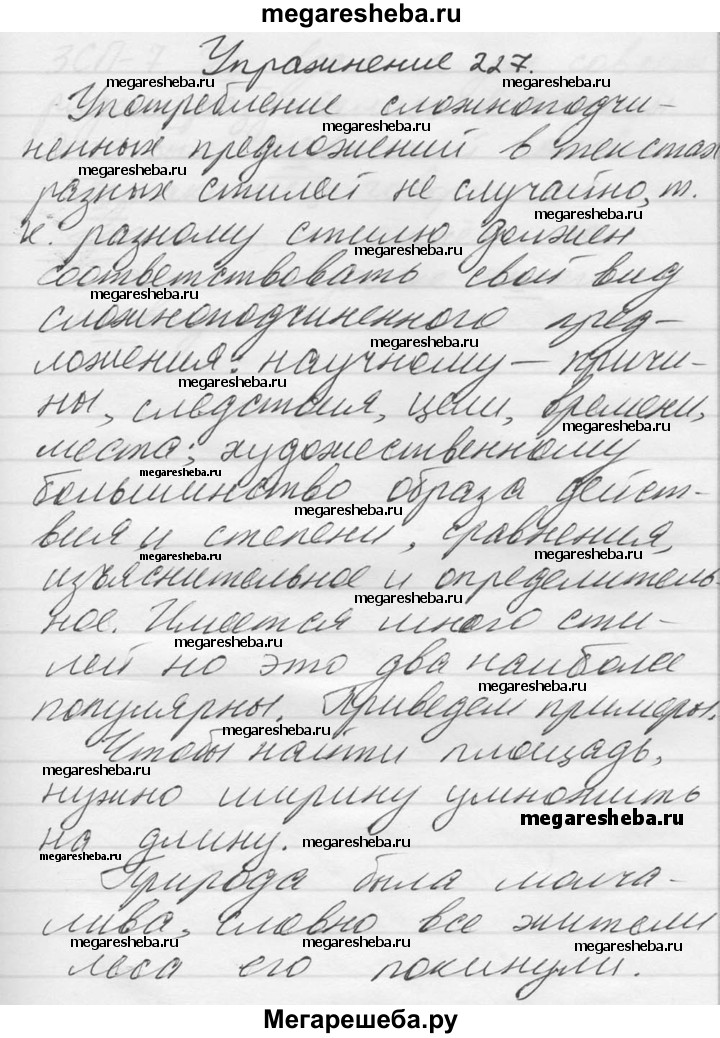 megaresheba.ru
Упражнение 227.
megaresheba.ru
Употребление сложноподчи-
megaresheba.ru
ненных предложений в текстах
megaresheba.ru
разных стилей не случайно, т.
megaresheba.ru
к. разному стилю должен
соответствовать свой вид
megaresheba.ru
сложноподчиненного пред-
megaresheba.ru
ложения: научному – причи-
megaresheba.ru
ны, следствия, цели, времени,
megaresheba.ru
места; художественному
megaresheba.ru
большинство образа дейст-
megaresheba.ru
вия и степени, сравнения,
megaresheba.ru megaresheba.ru
изъяснительное и определитель-
megaresheba.ru
ное. Имеется много сти-
megaresheba.ru
лей но это два наиболее
megaresheba.ru
популярны. Приведем примеры.
megaresheba.ru
Чтобы найти площадь,
megaresheba.ru
нужно ширину умножить
megaresheba.ru
на длину.
megaresheba.ru megaresheba.ru
Природа была молча-
лива, словно все жители
megaresheba.ru megaresheba.ru megaresheba.ru
леса его покинули.
Мегарешеба.ру